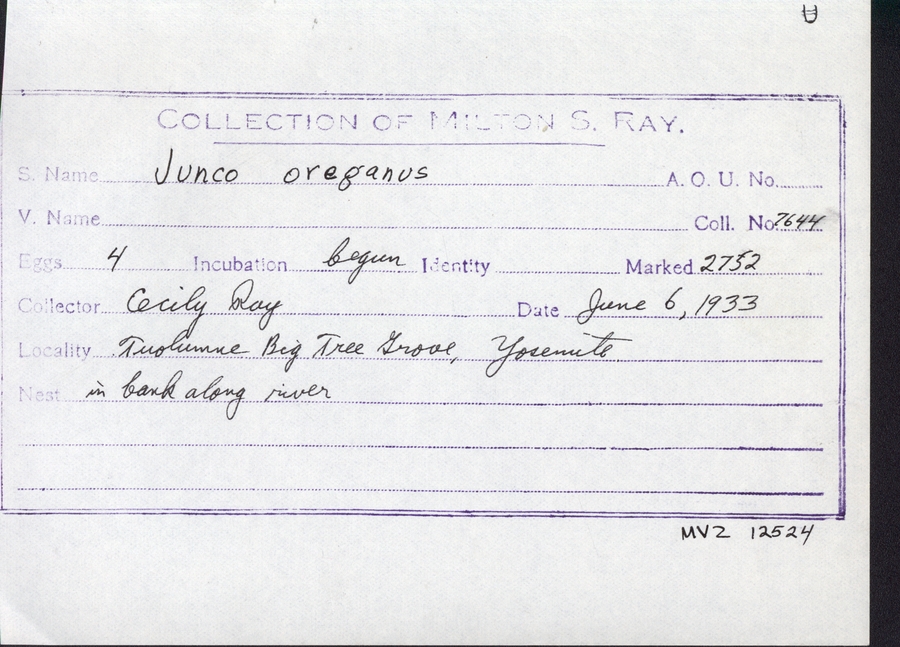 COLLECTION OF MILTON S. RAY.
S. Name Junco oreganus A. O. U. No.
V. Name Coll. No 7644
Eggs 4 Incubation begun Identity Marked 2752
Collector Cecily Ray Date June 6, 1933
Locality Tuolumne Big Tree Grove, Yosemite
Nest in bank along river
MVZ 12524